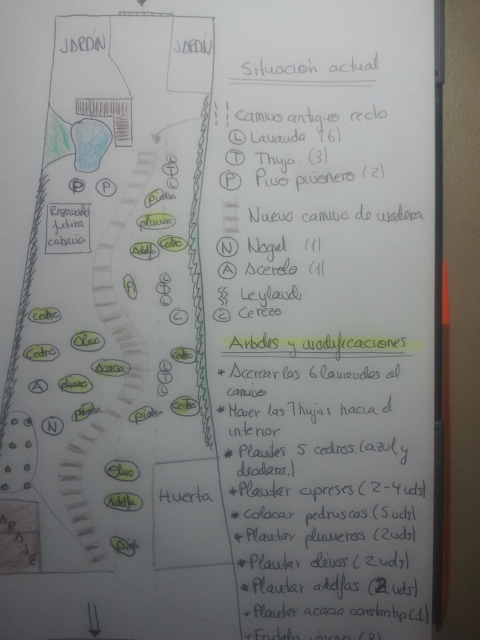 JARDÍN
JARDÍN
Situación actual
Camino antiguo recto
L Lavanda (6)
T Thuja. (3)
P Pino piñonero (2)
Nuevo camino de madera
N Nogal (1)
A Acerolo (1)
Leylandi
C Cerezo
P
P
Reservado
futura
cabaña
Piedra
plumero
Adelfa
Cedro
P
C
Cedro
Cedro
Olivo
Acacia
Cedro
A
plumero
N
Piedra
Piedra
Cedro
Olivo
Adelfa
Huerta
Arboles y modificaciones
* Acercar las 6 lavandas al
camino
* Mover las Thujas hacia el
interior
* Plantar 5 cedros (azul, y
deodara.)
* Plantar cipreses (2-4 uds)
* Colocar pedruscos (5 uds)
* Plantar plumeros (2 uds)
* Plantar olivos (2 uds)
* Plantar adelfas (2 uds)
* Plantar acacia constantip (1)